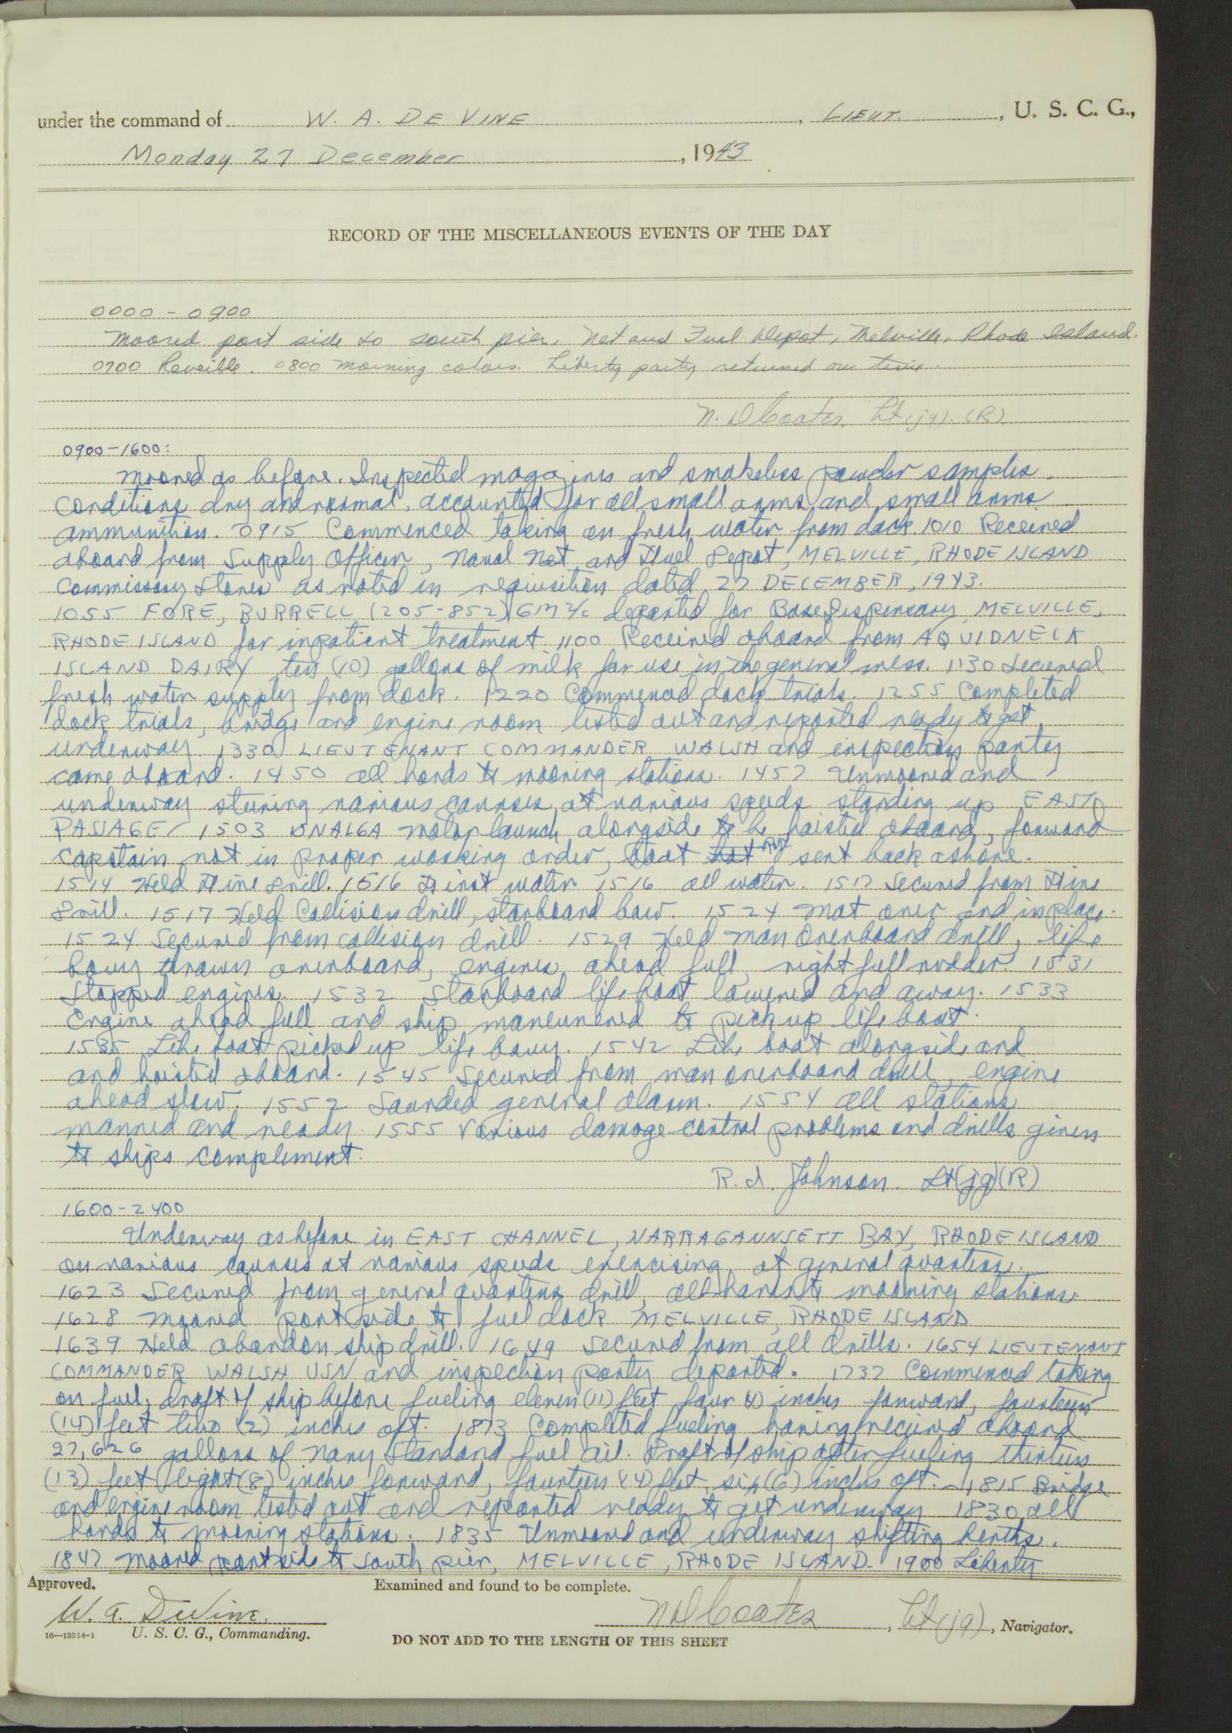 under the command of W. A. DE VINE, LIEUT., U. S. C. G.,
Monday 27 December, 1943
RECORD OF THE MISCELLANEOUS EVENTS OF THE DAY
0000 - 0900
Moored port side to south pier, Net and Fuel Depot, Melville, Rhode Island.
0700 Reveille. 0800 morning colors. Liberty party returned on time.
N. D Coates Lt (jg). (R)
0900-1600:
Moored as before. Inspected magazines and smokeless powder samples.
Conditions dry and normal, accounted for all small arms and small arms
ammunition. 0915 Commenced taking on fresh water from dock 1010 Received
aboard from Supply Officer, Naval Net and Fuel Depot, MELVILLE, RHODE ISLAND
Commissary Stores as noted in requisition dated 27 DECEMBER, 1943.
1055 FORE, BURRELL (205-852) GM 2/c departed for Base Dispensary, MELVILLE,
RHODE ISLAND for inpatient treatment. 1100 Received aboard from AQUIDNECK
ISLAND DAIRY, ten (10) gallons of milk for use in the general mess. 1130 Secured
fresh water supply from dock. 1220 Commenced dock trials. 1255 Completed
dock trials, bridge and engine room tested out and reported ready to get
underway 1330 LIEUTENANT COMMANDER WALSH and inspection party
came aboard. 1450 all hands to mooring stations. 1457 Unmoored and
underway steering various courses at various speeds standing up EAST
PASSAGE 1503 UNALGA motor launch alongside to be hoisted aboard, forward
capstain not in proper working order, boat sent back ashore.
1514 Held Fire Drill. 1516 First water 1516 all water. 1517 Secured from Fire
Drill. 1517 Held Collision drill, starboard bow. 1524 mat over and in place.
1524 Secured from collision drill. 1529 Held man overboard drill, life
bouy thrown overboard, engines ahead full, right full rudder. 1531
Stopped engines. 1532 Starboard life boat lowered and away. 1533
Engine ahead full and ship maneuvered to pick up life boat.
1535 Life boat picked up life bouy. 1542 Life boat alongside and
and hoisted aboard. 1545 Secured from man overboard drill, engine
ahead slow. 1552 Sounded general alarm. 1554 all stations
manned and ready. 1555 Various damage control problems and drills given
to ships complement.
R. J. Johnson. Lt(jg)(R)
1600-2400
Underway as before in EAST CHANNEL, NARRAGAUNSETT BAY, RHODE ISLAND
on various courses at various speeds exercising at general quarters.
1623 Secured from general quarters drill, all hands to mooring stations.
1628 Moored port side to fuel dock MELVILLE, RHODE ISLAND
1639 Held abandon ship drill. 1649 Secured from all drills. 1654 LIEUTENANT
COMMANDER WALSH USN and inspection party departed. 1732 Commenced taking
on fuel, draft of ship before fueling eleven (11) feet four (4) inches forward, fourteen
(14) feet two (2) inches aft. 1813 Completed fueling having received aboard
27,626 gallons of Navy Standard fuel oil. Draft of ship after fueling thirteen
(13) feet eight (8) inches forward, fourteen (14) feet, six (6) inches aft. 1815 Bridge
and engine room tested out and reported ready to get underway 1830 all
hands to mooring stations. 1835 Unmoored and underway shifting berths.
1847 moored port side to south pier, MELVILLE, RHODE ISLAND. 1900 Liberty
Approved. Examined and found to be complete.
W. A. DeVine, N D Coates, Lt (jg), Navigator.
16—13314-1 U. S. C. G., Commanding.
DO NOT ADD TO THE LENGTH OF THIS SHEET